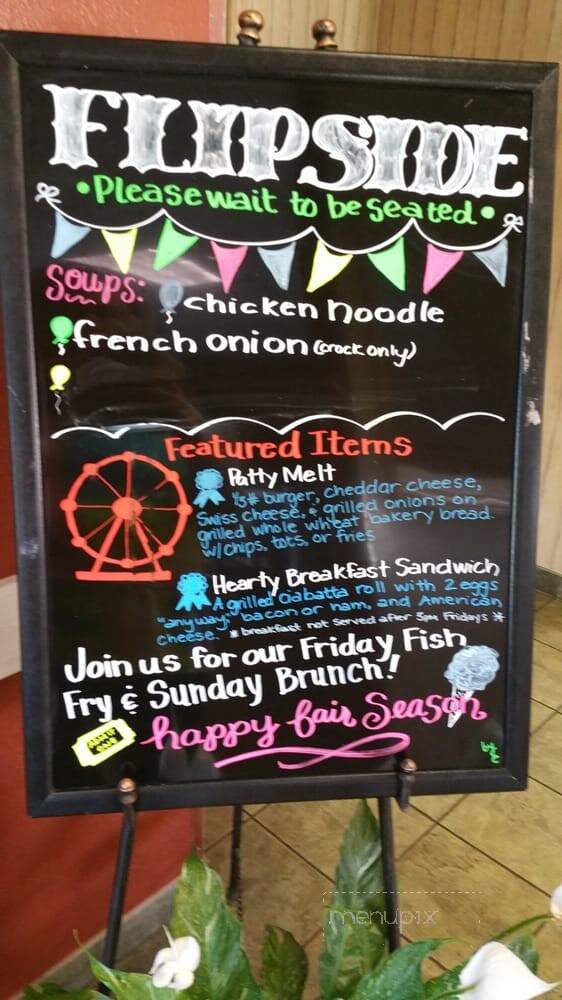 FLIPSIDE
•Please wait to be seated•
Soups:
chicken noodle
french onion (crock only)
Featured Items
Patty Melt
1/3# burger, cheddar cheese,
swiss cheese, & grilled onions on
grilled whole wheat bakery bread.
w/chips, tots, or fries
Hearty Breakfast Sandwich
A grilled ciabatta roll with 2 eggs
"anyway," bacon or ham, and American
cheese. *breakfast not served after 3pm Fridays*
Join us for our Friday Fish
Fry & Sunday Brunch!
happy fair Season
ADMIT
ONE
menupix